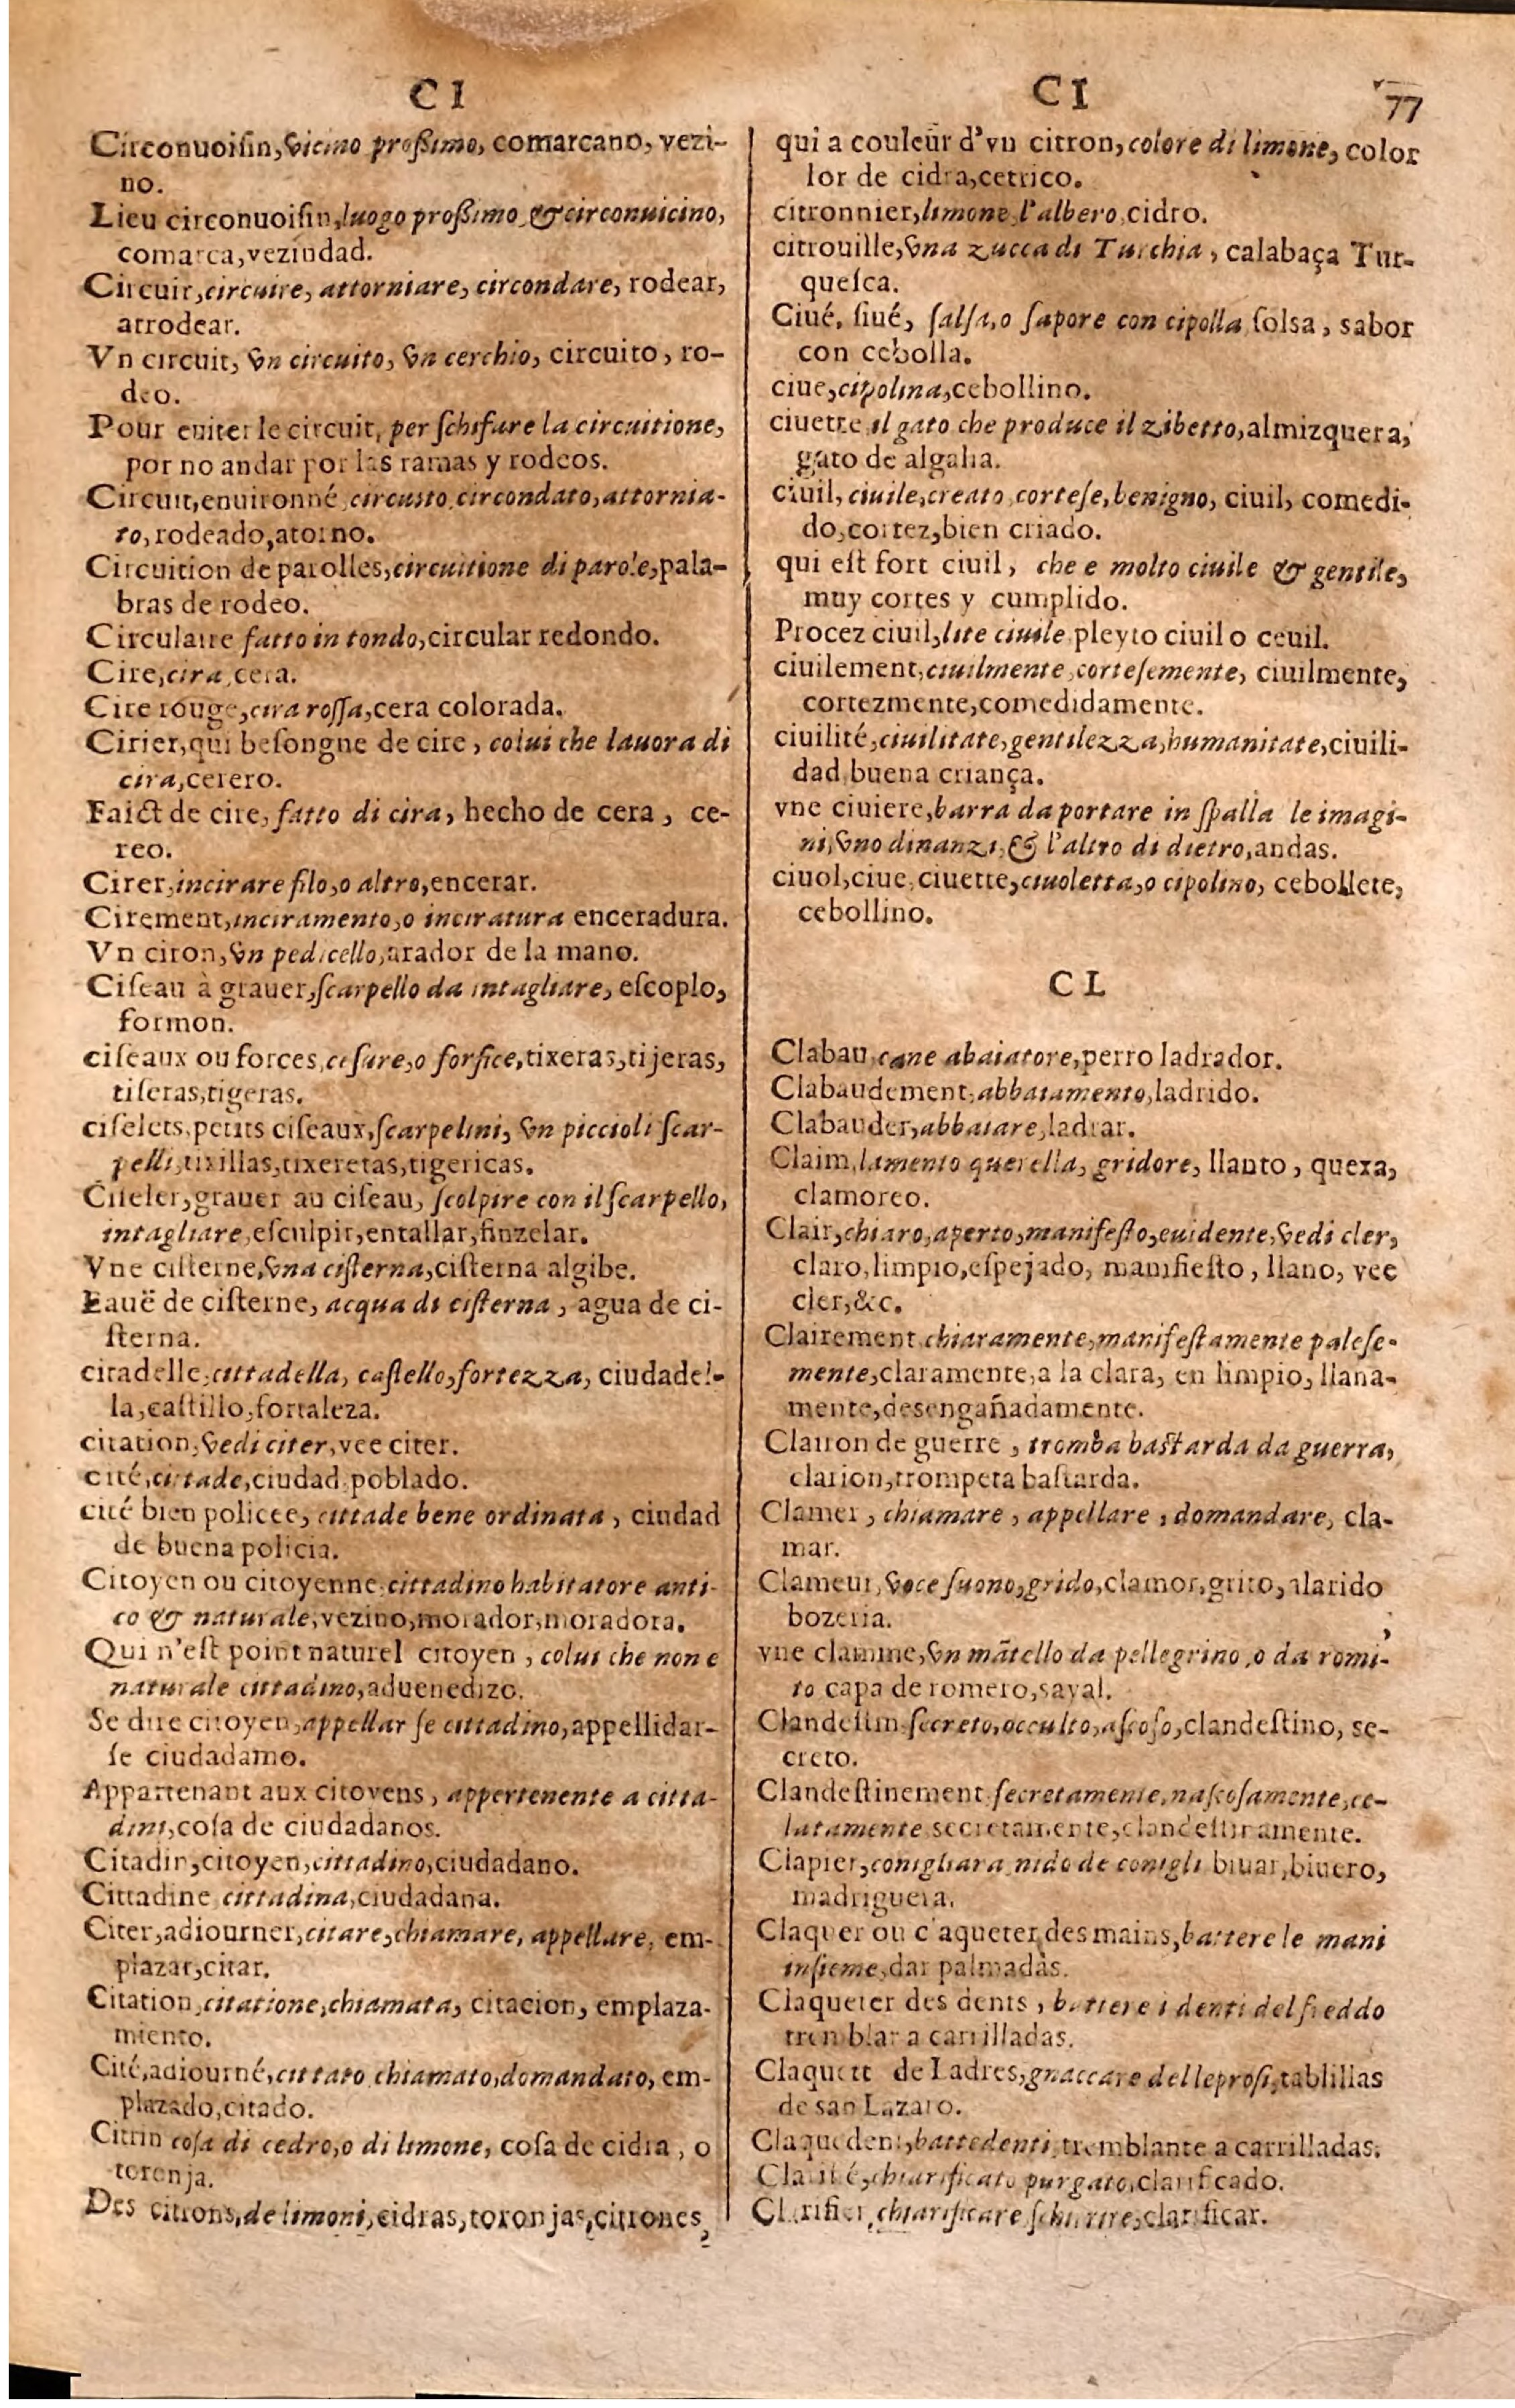 C I
Circonuoiſin, vicino proßimo, comarcano, vezi-
no.
Lieu circonuoiſin, luogo proßimo & circonuicino,
comarca, vezindad.
Circuir, circuire, attorniare, circondare, rodear,
arrodear.
Vn circuit, vn circuito, vn cerchio, circuito, ro-
deo.
Pour euiter le circuit, per ſchifare la circuitione,
por no andar por las ramas y rodeos.
Circuit, enuironné, circuito, circondato, attornia-
to, rodeado, atorno.
Circuition de parolles, circuitione di parole, pala-
bras de rodeo.
Circulaire fatto in tondo, circular redondo.
Cire, cira, cera.
Cire rouge, cira roſſa, cera colorada.
Cirier, qui beſongne de cire, colui che lauora di
cira, cerero.
Faict de cire, fatto di cira, hecho de cera, ce-
reo.
Cirer, incirare filo, o altro, encerar.
Cirement, inciramento, o inciratura enceradura.
Vn ciron, vn pedicello, arador de la mano.
Ciſeau à grauer, ſcarpello da intagliare, eſcoplo,
formon.
ciſeaux ou forces, ceſure, o forfice, tixeras, tijeras,
tiſeras, tigeras.
ciſelets, petits ciſeaux, ſcarpelini, vn piccioli ſcar-
pelli, tixillas, tixeretas, tigericas.
Ciſeler, grauer au ciſeau, ſcolpire con il ſcarpello,
intagliare, eſculpir, entallar, ſinzelar.
Vne ciſterne, vna ciſterna, ciſterna algibe.
Eauë de ciſterne, acqua di ciſterna, agua de ci-
ſterna.
citadelle, cittadella, caſtello, fortezza, ciudadel-
la, caſtillo, fortaleza.
citation, vedi citer, vee citer.
cité, cittade, ciudad, poblado.
cité bien policee, cittade bene ordinata, ciudad
de buena policia.
Citoyen ou citoyenne, cittadino habitatore anti-
co & naturale, vezino, morador, moradora.
Qui n'eſt point naturel citoyen, colui che non e
naturale cittadino, aduenedizo.
Se dire citoyen, appellar ſe cittadino, appellidar-
ſe ciudadamo.
Appartenant aux citoyens, appertenente a citta-
dini, coſa de ciudadanos.
Citadin, citoyen, cittadino, ciudadano.
Cittadine cittadina, ciudadana.
Citer, adiourner, citare, chiamare, appellare, em-
plazar, citar.
Citation, citatione, chiamata, citacion, emplaza-
miento.
Cité, adiourné, cittato chiamato, domandato, em-
plazado, citado.
Citrin coſa di cedro, o di limone, coſa de cidra, o
toronja.
Des citrons, de limoni, cidras, toronjas, citrones,
C I 77
qui a couleur d'vn citron, colore di limone, color
lor de cidra, cetrico.
citronnier, limone l'albero, cidro.
citrouille, vna zucca di Turchia, calabaça Tur-
queſca.
Ciué, ſiué, ſalſa, o ſapore con cipolla ſolsa, sabor
con cebolla.
ciue, cipolina, cebollino.
ciuette il gato che produce il zibetto, almizquera,
gato de algalia.
ciuil, ciuile, creato, corteſe, benigno, ciuil, comedi-
do, cortez, bien criado.
qui eſt fort ciuil, che e molto ciuile & gentile,
muy cortes y cumplido.
Procez ciuil, lite ciuile pleyto ciuil o ceuil.
ciuilement, ciuilmente, corteſemente, ciuilmente,
cortezmente, comedidamente.
ciuilité, ciuilitate, gentilezza, humanitate, ciuili-
dad buena criança.
vne ciuiere, barra da portare in ſpalla le imagi-
ni, vno dinanzi, & l'altro di dietro, andas.
ciuol, ciue, ciuette, ciuoletta, o cipolino, cebollete,
cebollino.
C L
Clabau, cane abaiatore, perro ladrador.
Clabaudement, abbaiamento, ladrido.
Clabauder, abbaiare, ladrar.
Claim, lamento querella, gridore, llanto, quexa,
clamoreo.
Clair, chiaro, aperto, manifeſto, euidente, vedi cler,
claro, limpio, eſpejado, manifieſto, llano, vee
cler, &c.
Clairement chiaramente, manifeſtamente paleſe-
mente, claramente, a la clara, en limpio, llana-
mente, desengañadamente.
Clairon de guerre, tromba baſtarda da guerra,
clarion, trompeta baſtarda.
Clamer, chiamare, appellare, domandare, cla-
mar.
Clameur, voce ſuono, grido, clamor, grito, alarido
bozeria.
vne clamine, vn mãtello da pellegrino, o da romi-
to capa de romero, sayal.
Clandeſtin ſecreto, occulto, aſcoſo, clandeſtino, se-
creto.
Clandeſtinement ſecretamente, naſcoſamente, ce-
latamente secretamente, clandeſtinamente.
Clapier, conigliara nido de conigli biuar, biuero,
madriguera.
Claquer ou claqueter des mains, battere le mani
inſieme, dar palmadas.
Claqueter des dents, battere i denti del freddo
tremblar a carrilladas.
Claquett de Ladres, gnaccare delleproſi, tablillas
de san Lazaro.
Claquedent, battedenti, tremblante a carrilladas.
Clarifié, chiarificato purgato, clarificado.
Clarifier, chiarificare ſchiarire, clarificar.